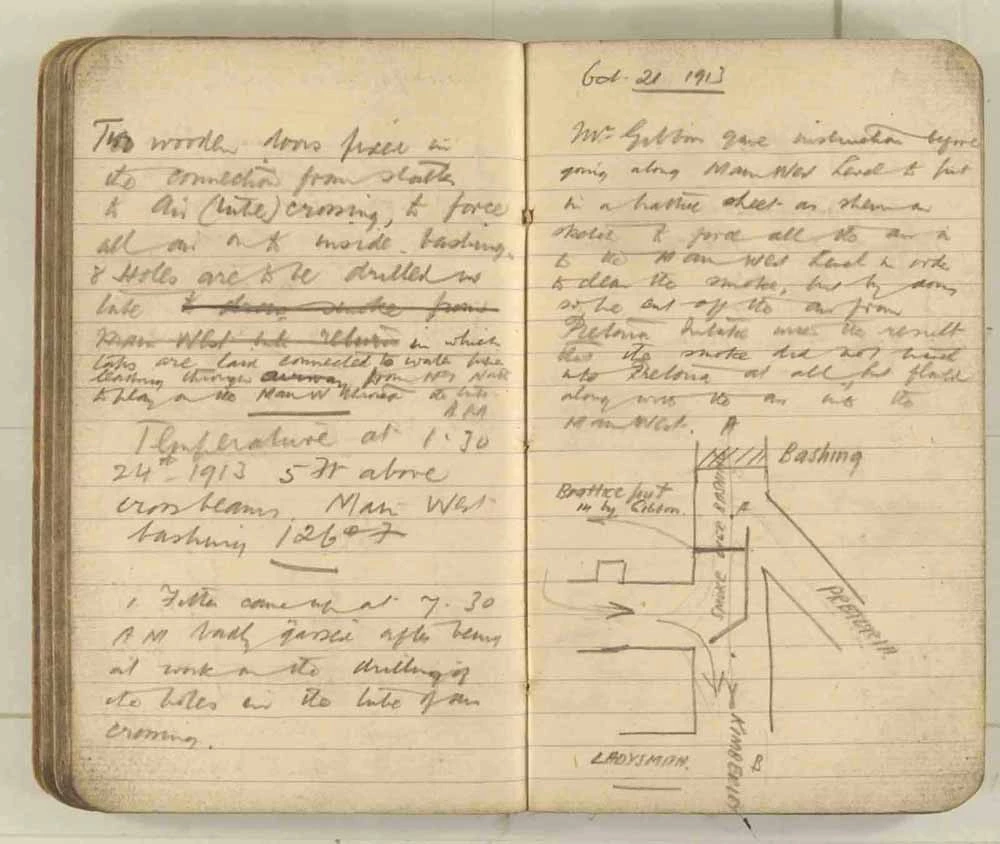 Two wooden doors fixed in
the connection from slatter
to Air (tube) crossing, to force
all air on to inside bashing.
8 Holes are to be drilled in
tube to draw smoke from
Main West into return in which
taps are laid connected to water pipe
leading through airway from
to play on the Main W
Temperature at 1.30
24th 1913 5 Ft above
crossbeams Main West
bashing 126° F
1 Fitter came up at 7.30
AM badly gassed after being
at work on the drilling of
the holes in the tube of air
crossing.
Oct. 21 1913
Mr Gibbon gave instruction before
going along Main West Level to put
in a brattice sheet as shewn on
sketch to force all the air in
to the Main West Level in order
to clear the smoke, but by doing
so he cut off the air from
Pretoria Intake were the result
the smoke did not
into Pretoria at all, but
along with the air into the
Main West.
A
Bashing
Brattice put
in by Gibbon.
A
SMOKE OVER BASHING
PRETORIA
KIMBERLEY
B
LADYSMITH.